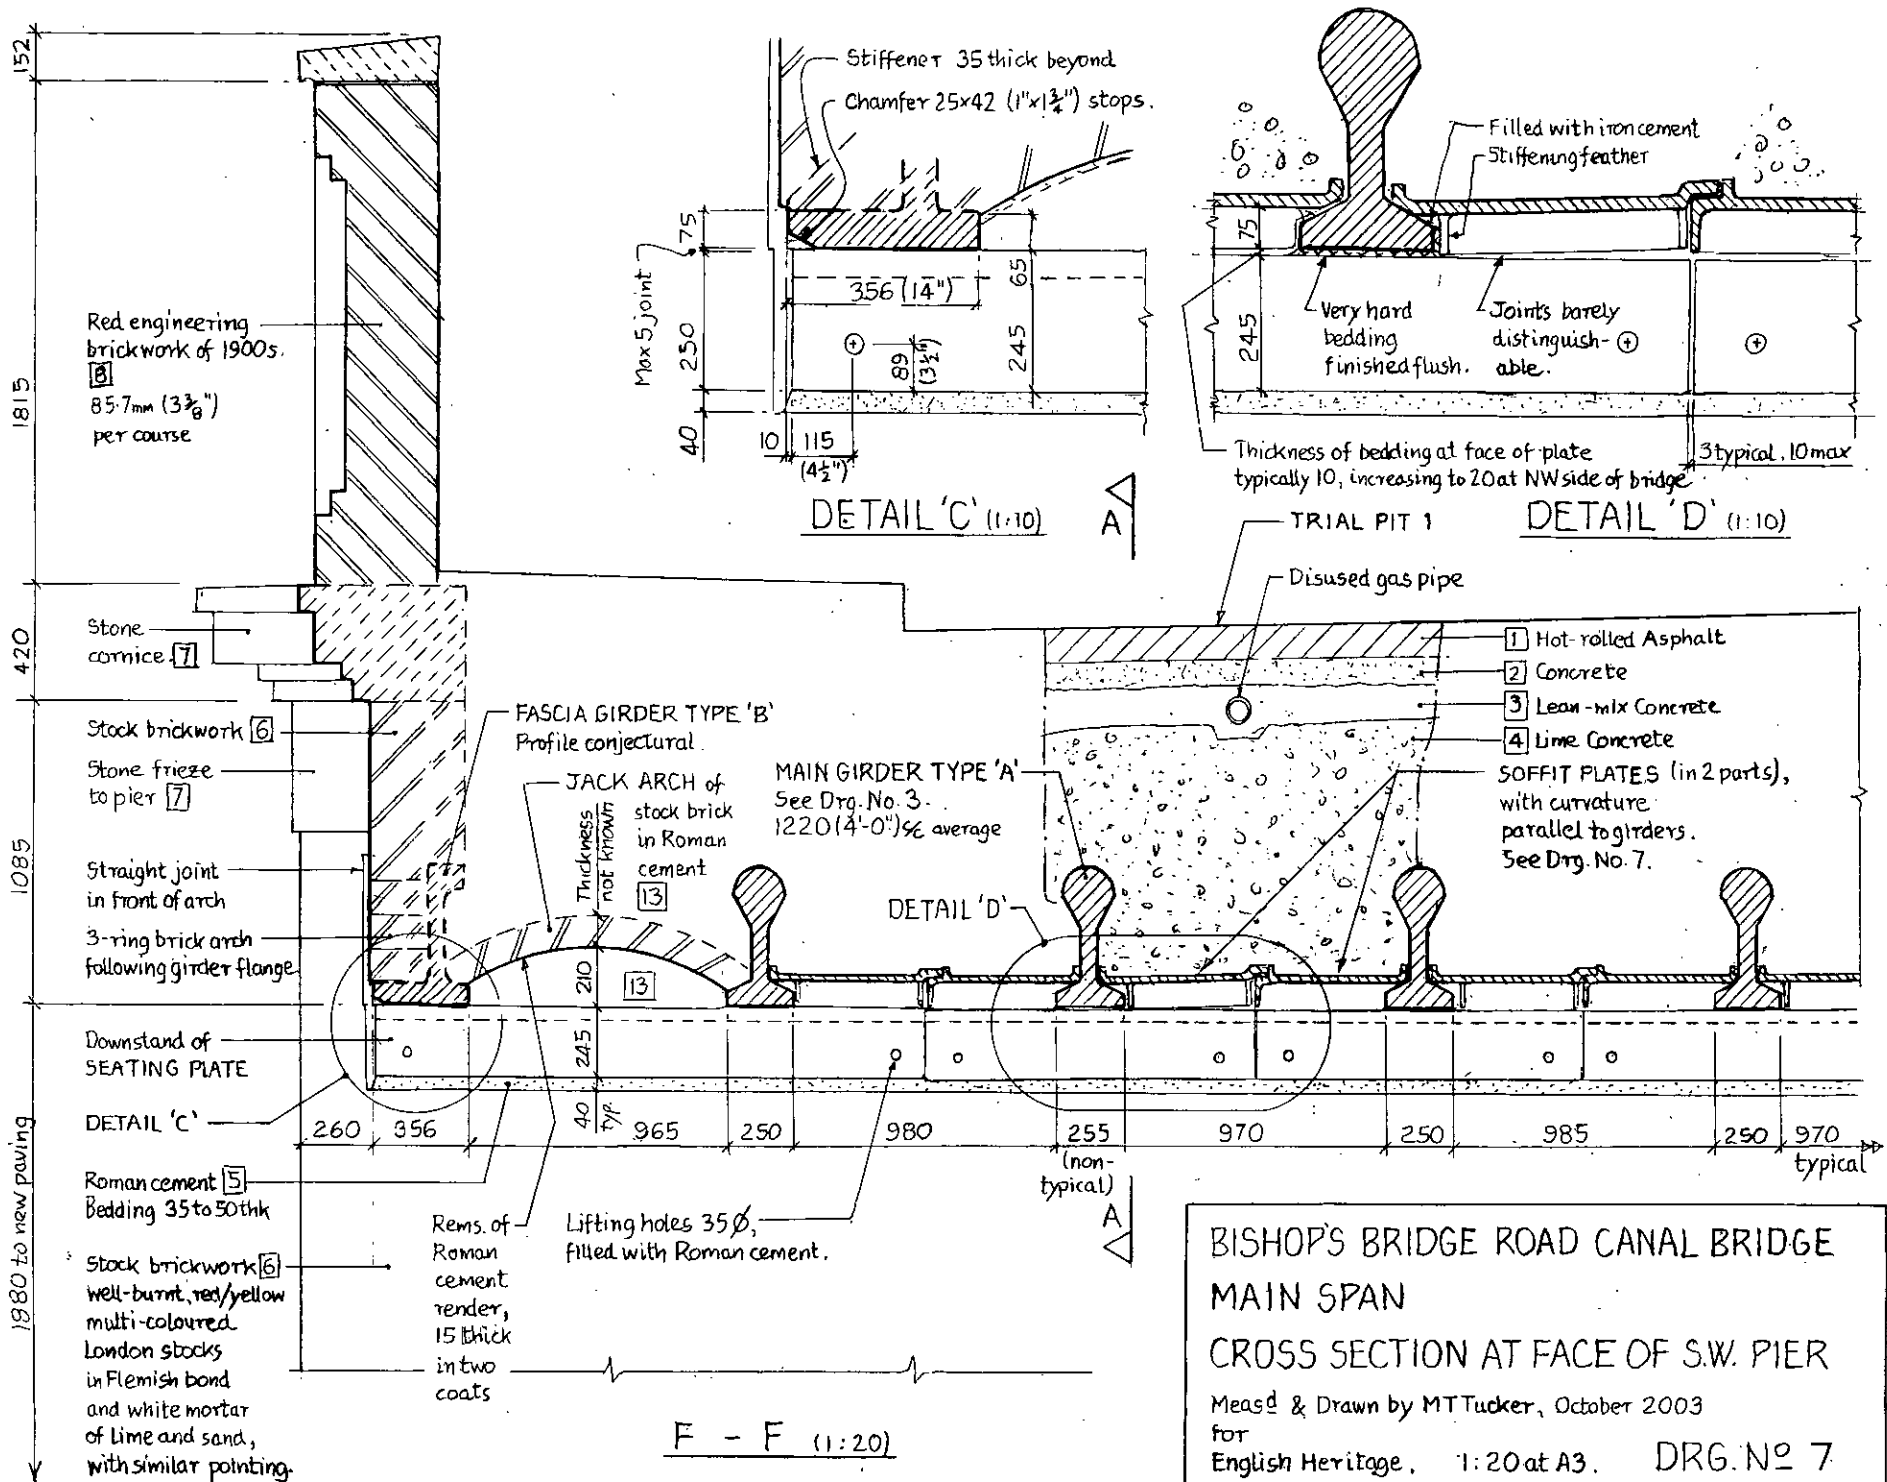 152
1815
420
1085
1980 to new paving
Red engineering
brickwork of 1900s.
8
85.7mm (3⅜")
per course
Stone
cornice. 7
Stock brickwork 6
Stone frieze
to pier 7
Straight joint
in front of arch
3-ring brick arch
following girder flange
Downstand of
SEATING PLATE
DETAIL 'C'
Roman cement 5
Bedding 35 to 50 thk
Stock brickwork 6
well-burnt, red/yellow
multi-coloured
London stocks
in Flemish bond
and white mortar
of lime and sand,
with similar pointing.
Stiffener 35 thick beyond
Chamfer 25×42 (1"×1¾") stops.
75
Max 5 joint
250
40
356 (14")
65
245
89
(3½")
10 115
(4½")
DETAIL 'C' (1:10)
Filled with iron cement
Stiffening feather
75
245
Very hard
bedding
finished flush.
Joints barely
distinguish-
able.
Thickness of bedding at face of plate
typically 10, increasing to 20 at NW side of bridge
3 typical. 10 max
DETAIL 'D' (1:10)
A
TRIAL PIT 1
Disused gas pipe
1 Hot-rolled Asphalt
2 Concrete
3 Lean-mix Concrete
4 Lime Concrete
SOFFIT PLATES (in 2 parts),
with curvature
parallel to girders.
See Drg. No. 7.
FASCIA GIRDER TYPE 'B'
Profile conjectural.
JACK ARCH of
stock brick
in Roman
cement
13
Thickness
not known
MAIN GIRDER TYPE 'A'
See Drg. No. 3.
1220 (4'-0") c/c average
DETAIL 'D'
210
13
245
40
typ.
260 356 965 250 980 255 970 250 985 250 970
(non-
typical)
typical
A
Rems. of
Roman
cement
render,
15 thick
in two
coats
Lifting holes 35Ø,
filled with Roman cement.
F - F (1:20)
BISHOP'S BRIDGE ROAD CANAL BRIDGE
MAIN SPAN
CROSS SECTION AT FACE OF S.W. PIER
Measd & Drawn by MT Tucker, October 2003
for
English Heritage. 1:20 at A3. DRG. Nº 7